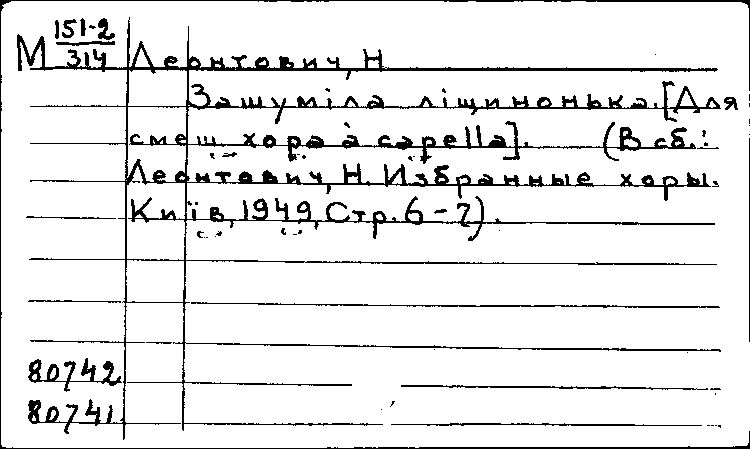 М 151-2/314 Леонтович, Н
Зашуміла ліщинонька. [Для
смеш. хора à capella]. (В сб.:
Леонтович, Н. Избранные хоры.
Київ, 1949, Стр. 6-7).
80742
80741